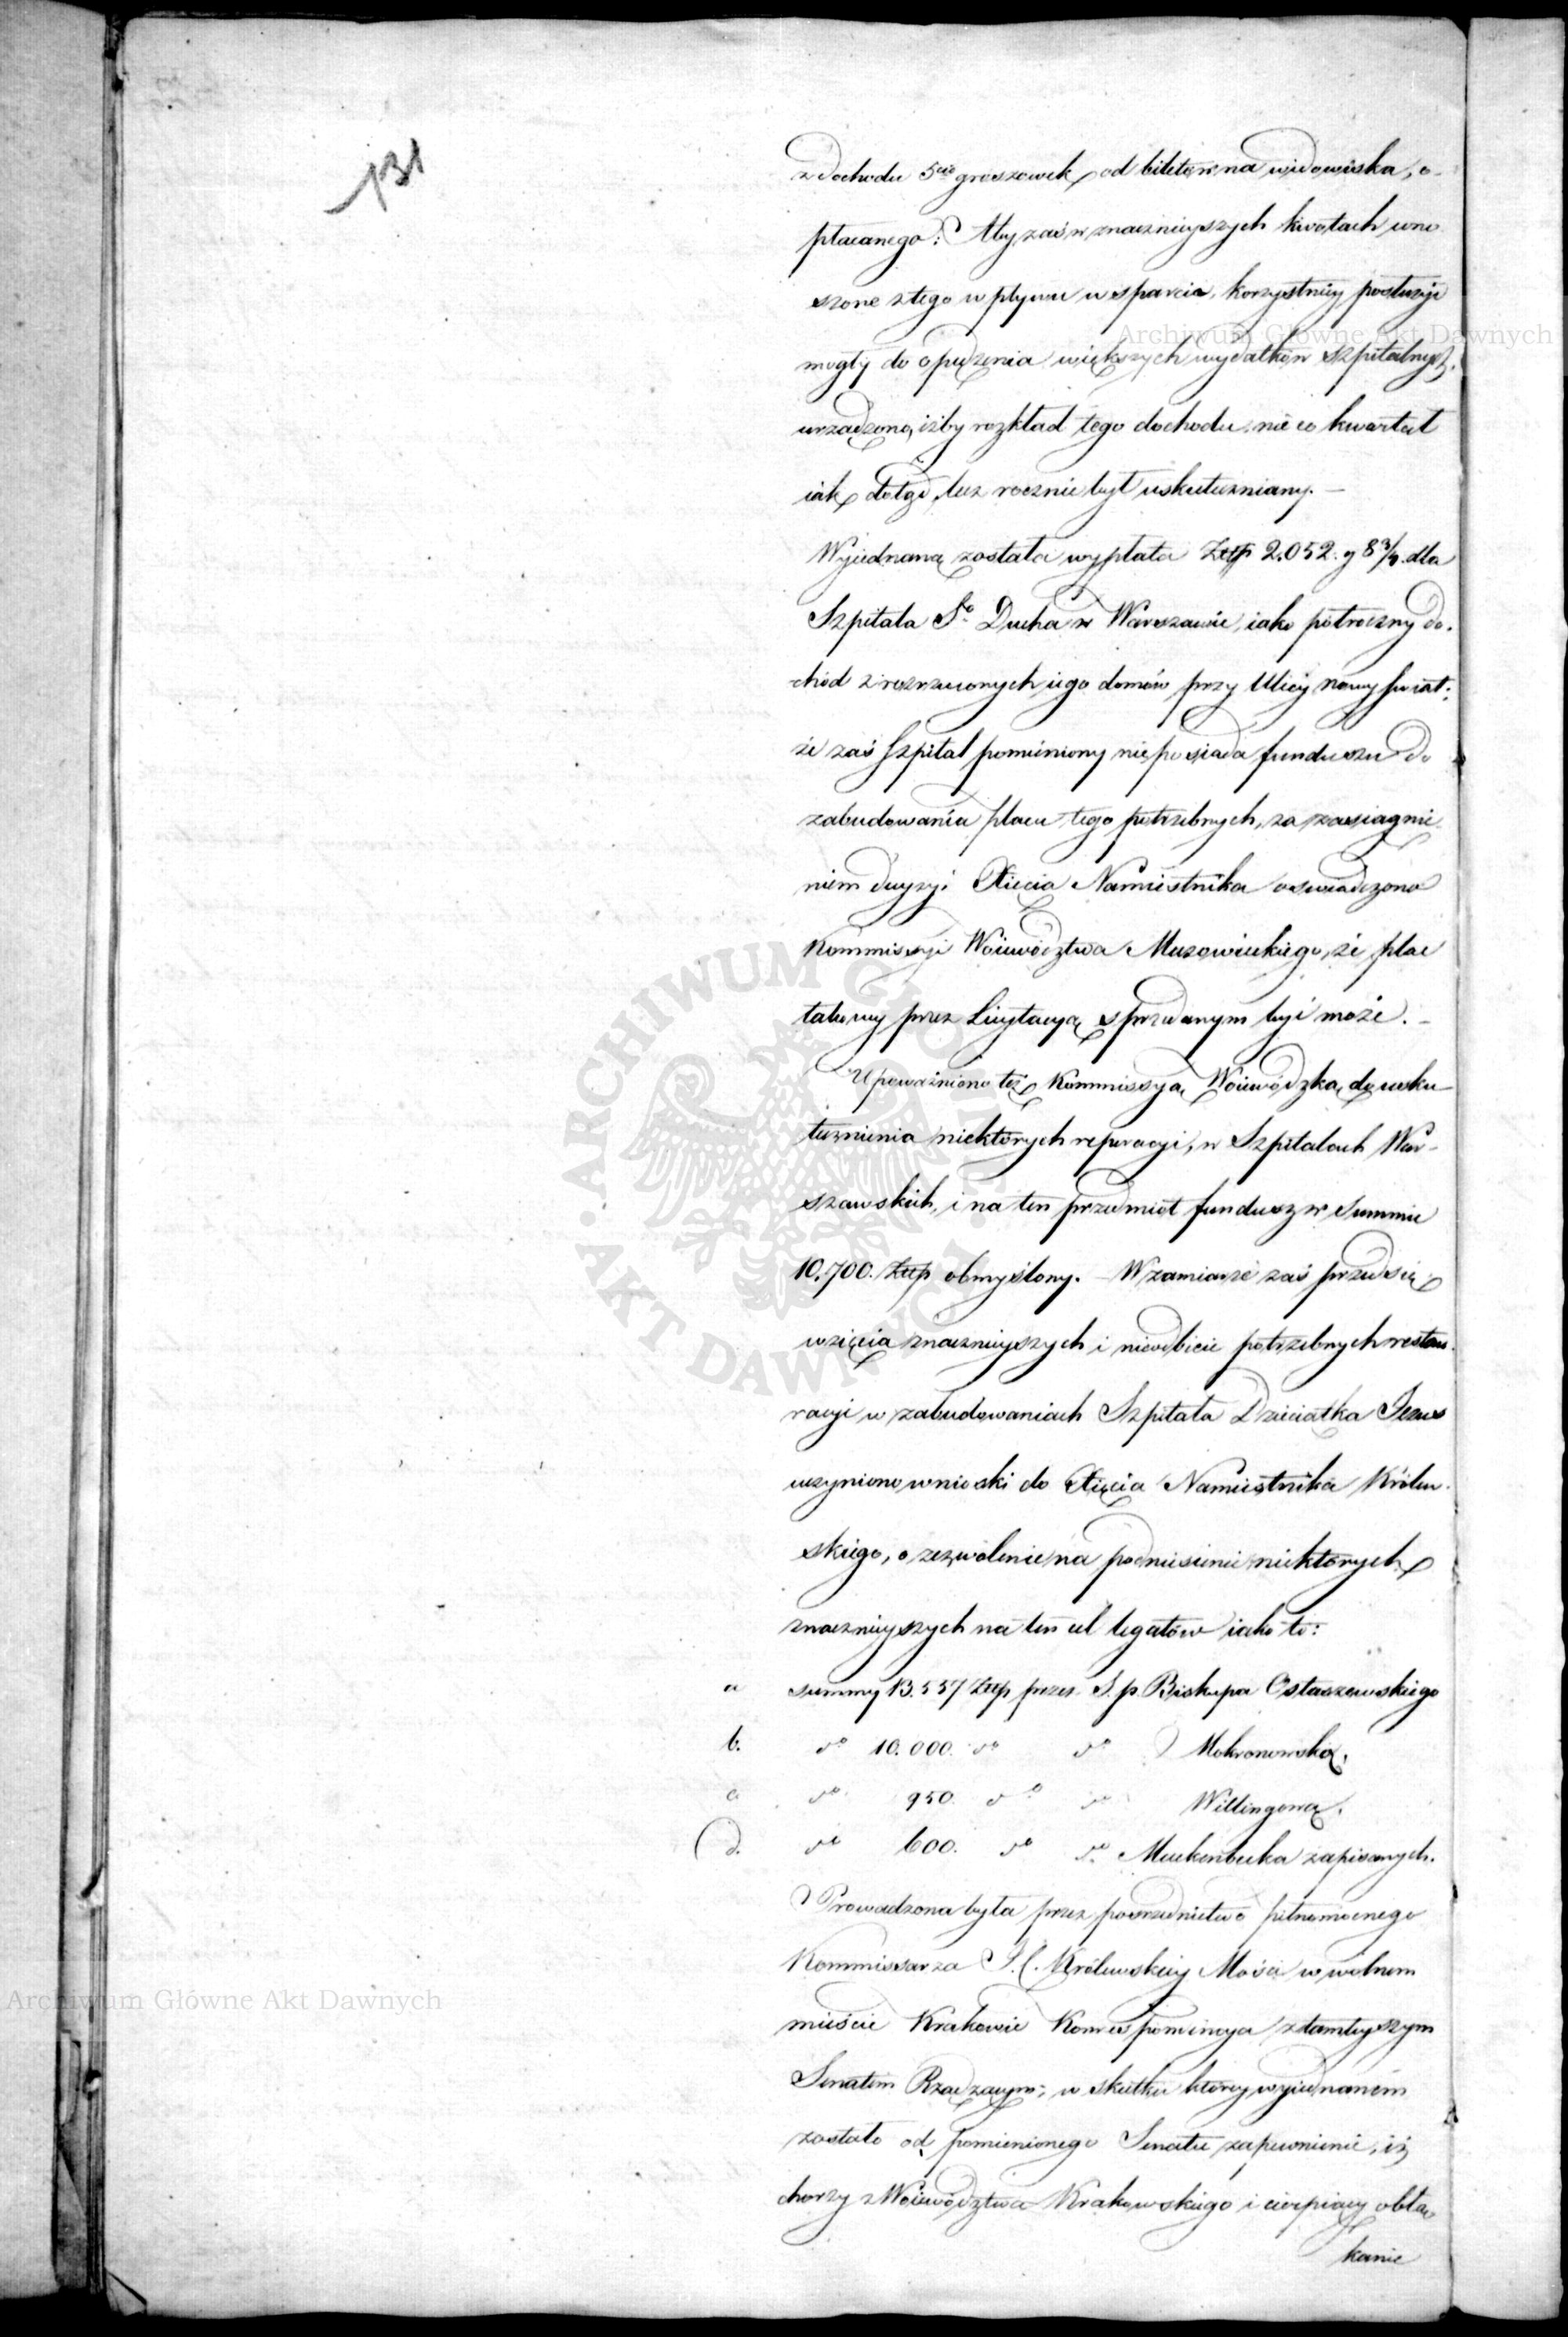 131
z dochodu 5cio groszowek od biletów na widowiska, o-
płacanego: Aby zaś w znacznieyszych kwotach wno
szone z tego wpływu wsparcia, korzystniey posłużyć
mogły do opędzenia większych wydatków szpitalnych,
urządzono, iżby rozkład tego dochodu, nie co kwartał
iak dotąd, lecz rocznie był uskuteczniany. —
Wyiednaną została wypłata Złtp 2.052. g 8 3/4. dla
Szpitala So Ducha w Warszawie, iako półroczny do-
chód z rozrzuconych iego domów przy Ulicy nowy świat;
że zaś Szpital pomieniony nie posiada funduszu do
zabudowania placu tego potrzebnych, za zasiągnie-
niem decyzyi Xięcia Namiestnika oświadczono
Kommissyi Woiewództwa Mazowieckiego, że plac
takowy przez Licytacyą sprzedanym być może. —
Upoważniono też Kommissyą Woiewódzką do usku
tecznienia niektórych reperacyi, w Szpitalach War-
szawskich, i na ten przedmiot fundusz w Summie
10,700. Złtp obmyślony. — W zamiarze zaś przedsię
wzięcia znacznieyszych i nieodbicie potrzebnych restau-
racyi w zabudowaniach Szpitala Dzieciątka Jezus
uczyniono wnioski do Xięcia Namiestnika Królew-
skiego, o zezwolenie na podniesienie niektórych
znacznieyszych na ten cel legatów iako to:
a summy 13.537 Złtp przez S. p. Biskupa Ostaszewskiego
b. do 10.000. do do Mokronowską,
c do 950. do do Willingową,
d. do 600. do do Muckenbecka zapisanych.
Prowadzona była przez pośrednictwo pełnomocnego
Kommissarza J. C. Królewskiey Mości w wolnem
mieście Krakowie Korrespondencya z tamteyszym
Senatem Rządzącym; w skutku którey wyiednanem
zostało od pomienionego Senatu zapewnienie, iż
chorzy z Woiewództwa Krakowskiego i cierpiący obłą-
kanie
Archiwum Główne Akt Dawnych
Archiwum Główne Akt Dawnych
ARCHIWUM GŁÓWNE · AKT DAWNYCH ·